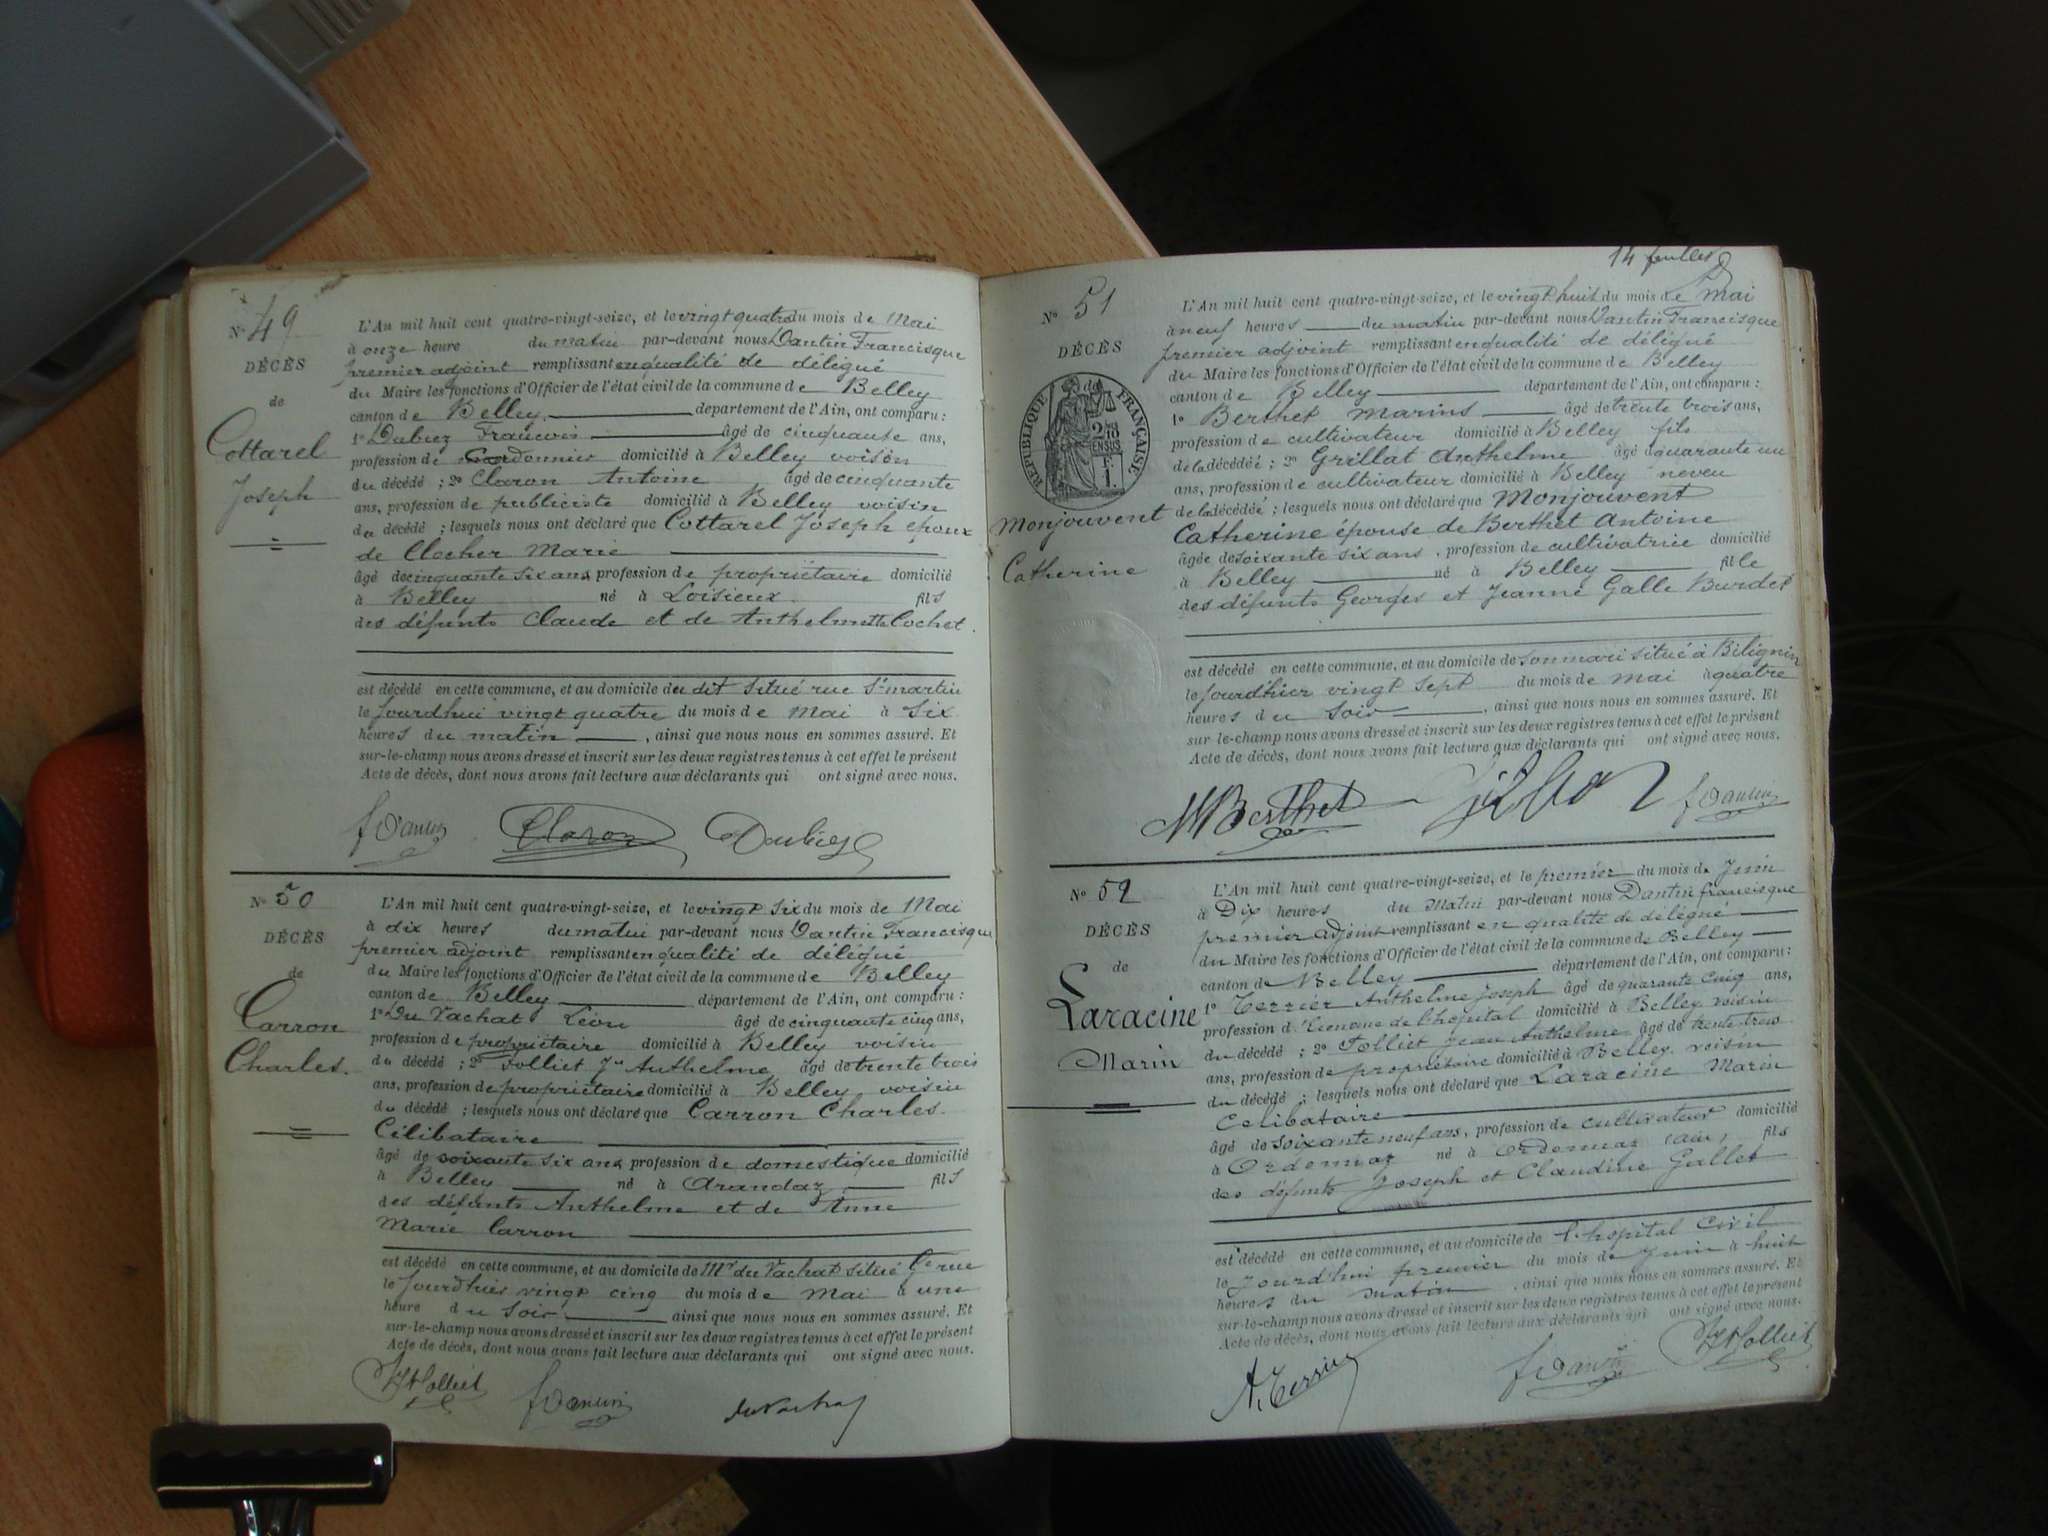 N° 49
DÉCÈS
de
Cottarel
Joseph
L'An mil huit cent quatre-vingt-seize, et le vingt quatre du mois de Mai
à onze heure du matin par-devant nous Dantin Francisque
premier adjoint remplissant en qualité de délégué
du Maire les fonctions d'Officier de l'état civil de la commune de Belley
canton de Belley département de l'Ain, ont comparu :
1° Dubiez François âgé de cinquante ans,
profession de Cordonnier domicilié à Belley voisin
du décédé ; 2° Claron Antoine âgé de cinquante
ans, profession de publiciste domicilié à Belley voisin
du décédé ; lesquels nous ont déclaré que Cottarel Joseph époux
de Clocher Marie
âgé de cinquante six ans profession de propriétaire domicilié
à Belley né à Loisieux fils
des défunts Claude et de Anthelmette Cochet.
est décédé en cette commune, et au domicile du dit situé rue St martin
le Jourdhui vingt quatre du mois de Mai à Six
heures du matin, ainsi que nous nous en sommes assuré. Et
sur-le-champ nous avons dressé et inscrit sur les deux registres tenus à cet effet le présent
Acte de décès, dont nous avons fait lecture aux déclarants qui ont signé avec nous.
f Dantin Claron Dubiez
N° 50
DÉCÈS
de
Carron
Charles.
L'An mil huit cent quatre-vingt-seize, et le vingt six du mois de Mai
à dix heures du matin par-devant nous Dantin Francisque
premier adjoint remplissant en qualité de délégué
du Maire les fonctions d'Officier de l'état civil de la commune de Belley
canton de Belley département de l'Ain, ont comparu :
1° Du Vachat Léon âgé de cinquante cinq ans,
profession de propriétaire domicilié à Belley voisin
du décédé ; 2° Jolliet Jn Anthelme âgé de trente trois
ans, profession de propriétaire domicilié à Belley voisin
du décédé ; lesquels nous ont déclaré que Carron Charles
Célibataire
âgé de soixante six ans profession de domestique domicilié
à Belley né à Arandaz fils
des défunts Anthelme et de Anne
Marie Carron
est décédé en cette commune, et au domicile de Mr du Vachat situé Gde rue
le Jourdhier vingt cinq du mois de Mai à une
heure du Soir, ainsi que nous nous en sommes assuré. Et
sur-le-champ nous avons dressé et inscrit sur les deux registres tenus à cet effet le présent
Acte de décès, dont nous avons fait lecture aux déclarants qui ont signé avec nous.
JA Jolliet f Dantin du Vachat
14 feuillets
N° 51
DÉCÈS
de
RÉPUBLIQUE FRANÇAISE
Monjouvent
Catherine
L'An mil huit cent quatre-vingt-seize, et le vingt huit du mois de Mai
à neuf heures du matin par-devant nous Dantin Francisque
premier adjoint remplissant en qualité de délégué
du Maire les fonctions d'Officier de l'état civil de la commune de Belley
canton de Belley département de l'Ain, ont comparu :
1° Berthet Marins âgé de trente trois ans,
profession de cultivateur domicilié à Belley fils
de la décédée ; 2° Grillat Anthelme âgé de quarante un
ans, profession de cultivateur domicilié à Belley neveu
de la décédée ; lesquels nous ont déclaré que Monjouvent
Catherine épouse de Berthet Antoine
âgée de soixante six ans, profession de cultivatrice domicilié
à Belley né à Belley fille
des défunts Georges et Jeanne Galle Burdet
est décédé en cette commune, et au domicile de son mari situé à Bilignin
le Jourdhier vingt sept du mois de Mai à quatre
heures du Soir, ainsi que nous nous en sommes assuré. Et
sur-le-champ nous avons dressé et inscrit sur les deux registres tenus à cet effet le présent
Acte de décès, dont nous avons fait lecture aux déclarants qui ont signé avec nous.
M Berthet f Dantin
N° 52
DÉCÈS
de
Laracine
Marin
L'An mil huit cent quatre-vingt-seize, et le premier du mois de Juin
à Dix heures du Matin par-devant nous Dantin francisque
premier adjoint remplissant en qualité de délégué
du Maire les fonctions d'Officier de l'état civil de la commune de Belley
canton de Belley département de l'Ain, ont comparu :
1° Terrier Anthelme Joseph âgé de quarante cinq ans,
profession d'Econome de l'hôpital domicilié à Belley voisin
du décédé ; 2° Jolliet Jean Anthelme âgé de trente trois
ans, profession de propriétaire domicilié à Belley voisin
du décédé ; lesquels nous ont déclaré que Laracine Marin
Célibataire
âgé de soixante neuf ans, profession de cultivateur domicilié
à Ordonnaz né à Ordonnaz (ain) fils
des défunts Joseph et Claudine Gallet
est décédé en cette commune, et au domicile de l'hôpital Civil
le Jourdhui premier du mois de Juin à huit
heures du matin, ainsi que nous nous en sommes assuré. Et
sur-le-champ nous avons dressé et inscrit sur les deux registres tenus à cet effet le présent
Acte de décès, dont nous avons fait lecture aux déclarants qui ont signé avec nous.
A. Terrier f Dantin JA Jolliet